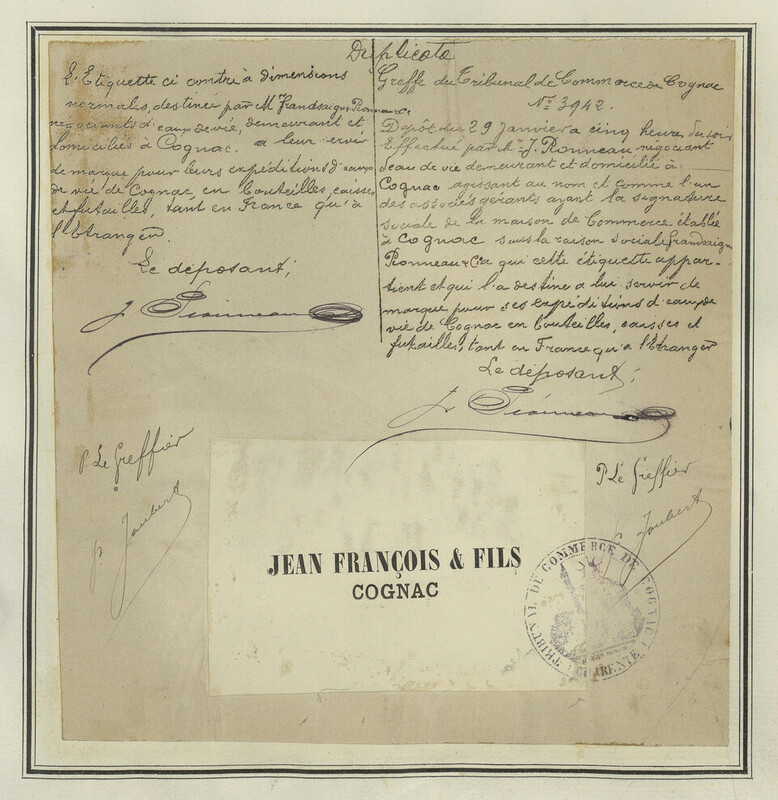 Duplicata
L'Etiquette ci contre à dimensions
normales, destinée par M. Frandsaigne Pionneau & Cie
négociants d'eaux de vie, demeurant et
domiciliés à Cognac. a leur servir
de marque pour leurs expéditions d'eaux
de vie de Cognac en bouteilles, caisses
et futailles, tant en France qu'à
l'Etranger.
Le déposant,
J. Pionneau
Greffe du Tribunal de Commerce de Cognac
No. 3942.
Dépôt du 29 Janvier a cinq heures du soir
Effectué par Mr. J. Pionneau négociant
d'eau de vie demeurant et domicilié à
Cognac agissant au nom et comme l'un
des associés gérants ayant la signature
sociale de la maison de Commerce établie
à Cognac sous la raison sociale Frandsaigne
Pionneau & Cie a qui cette étiquette appar-
tient et qui l'a destine a lui servir de
marque pour ses expéditions d'eaux de
vie de Cognac en bouteilles, caisses et
futailles, tant en France qu'a l'Etranger
Le déposant,
J. Pionneau
P. Le Greffier
P. Joubert
P. Le Greffier
Joubert
JEAN FRANÇOIS & FILS
COGNAC
TRIBUNAL DE COMMERCE DE COGNAC
CHARENTE